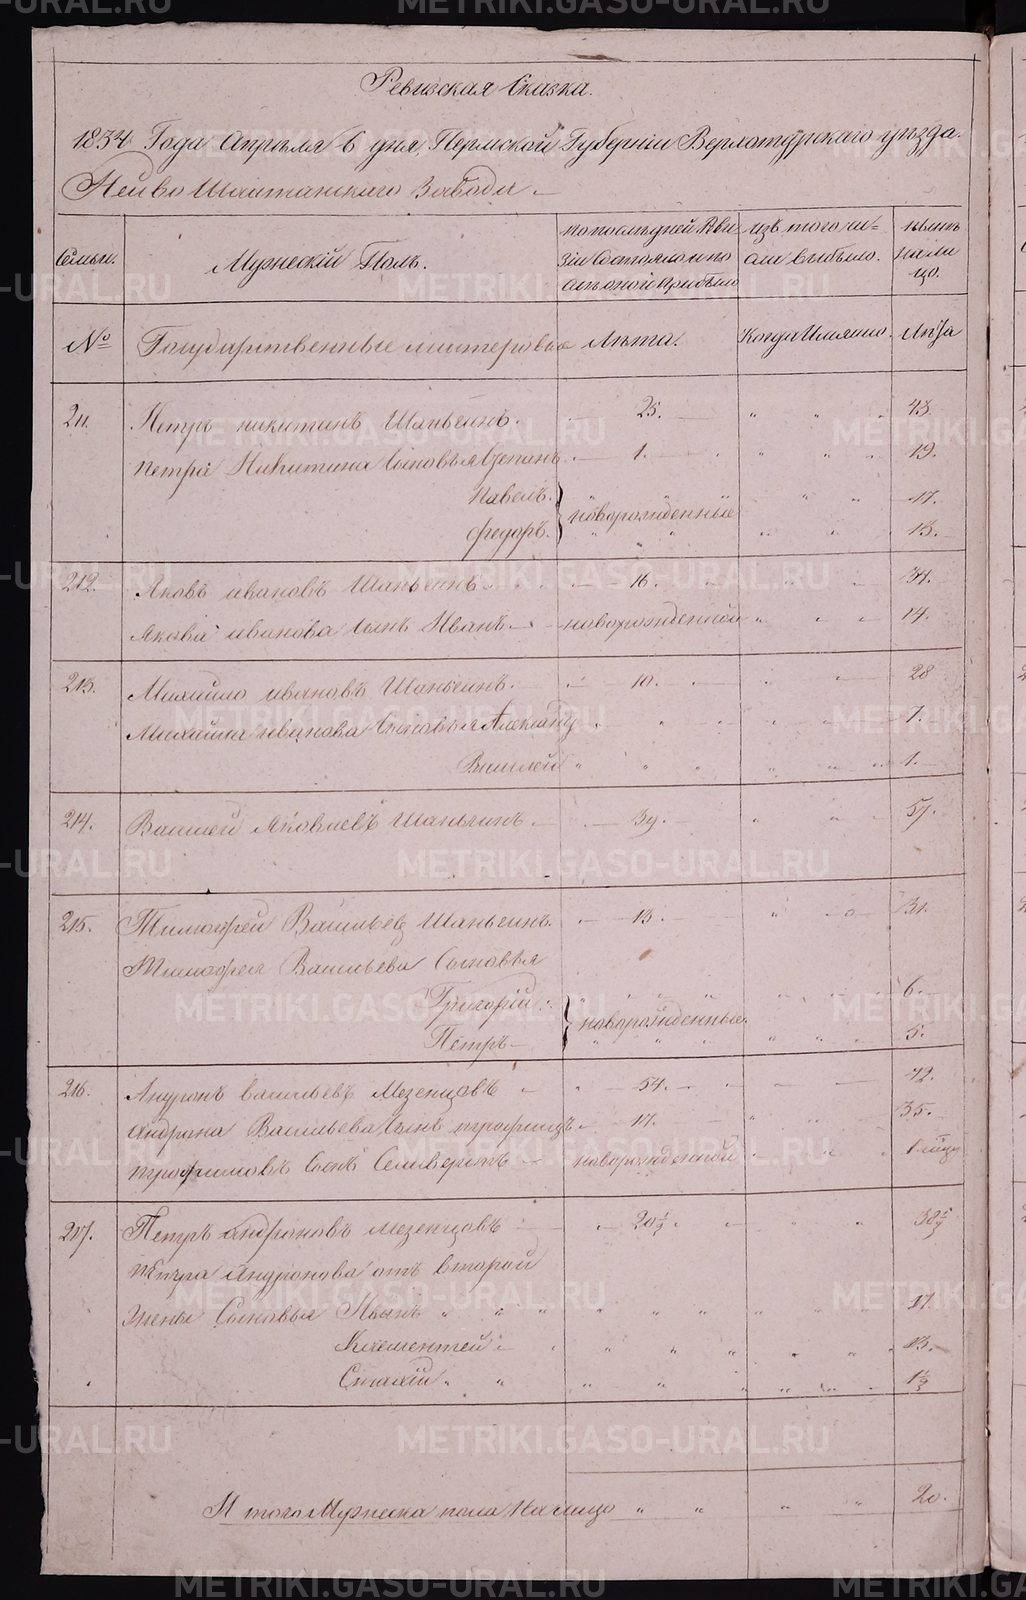 Ревизская Сказка.
1834 Года Апреля 6 дня, Пермской Губернии Верхотурскаго уезда.
Нейво Шайтанскаго Завода.
Семьи. Мужескiй Полъ. по последней Ревизiи Состояло и после оной прибыло изъ того числа выбыло. ныне на лицо.
№ Государственные мастеровые Лета. Когда Имянно. Лета
211. Петръ никитинъ Шаньгинъ. 25. 43.
Петра Никитина Сыновья Степанъ 1. 19.
Павелъ. } новорожденные 17.
Федоръ. 13.
212. Яковъ ивановъ Шаньгинъ 16. 34.
Якова иванова Сынъ Иванъ новорожденной 14.
213. Михайло ивановъ Шаньгинъ. 10. 28
Михайла иванова Сыновья Александръ 7.
Василей 1.
214. Васией Яковлевъ Шаньгинъ 39. 57.
215. Тимофей Васильев Шаньгинъ. 13. 31.
Тимофея Васильева Сыновья
Григорiй 6.
Петръ } новорожденные. 5.
216. Андронъ васильевъ Мезенцовъ 54. 72.
Андрона Васильева Сынъ трофимъ 17. 35.
трофимовъ Сынъ Селиверстъ новорожденной 1
217. Петръ андроновъ мезенцовъ 20½. 38½
Петра Андронова отъ второй
жены Сыновья Иванъ 17.
Климентей 13.
1½
И того Мужеска пола На лицо 20.
METRIKI.GASO-URAL.RU